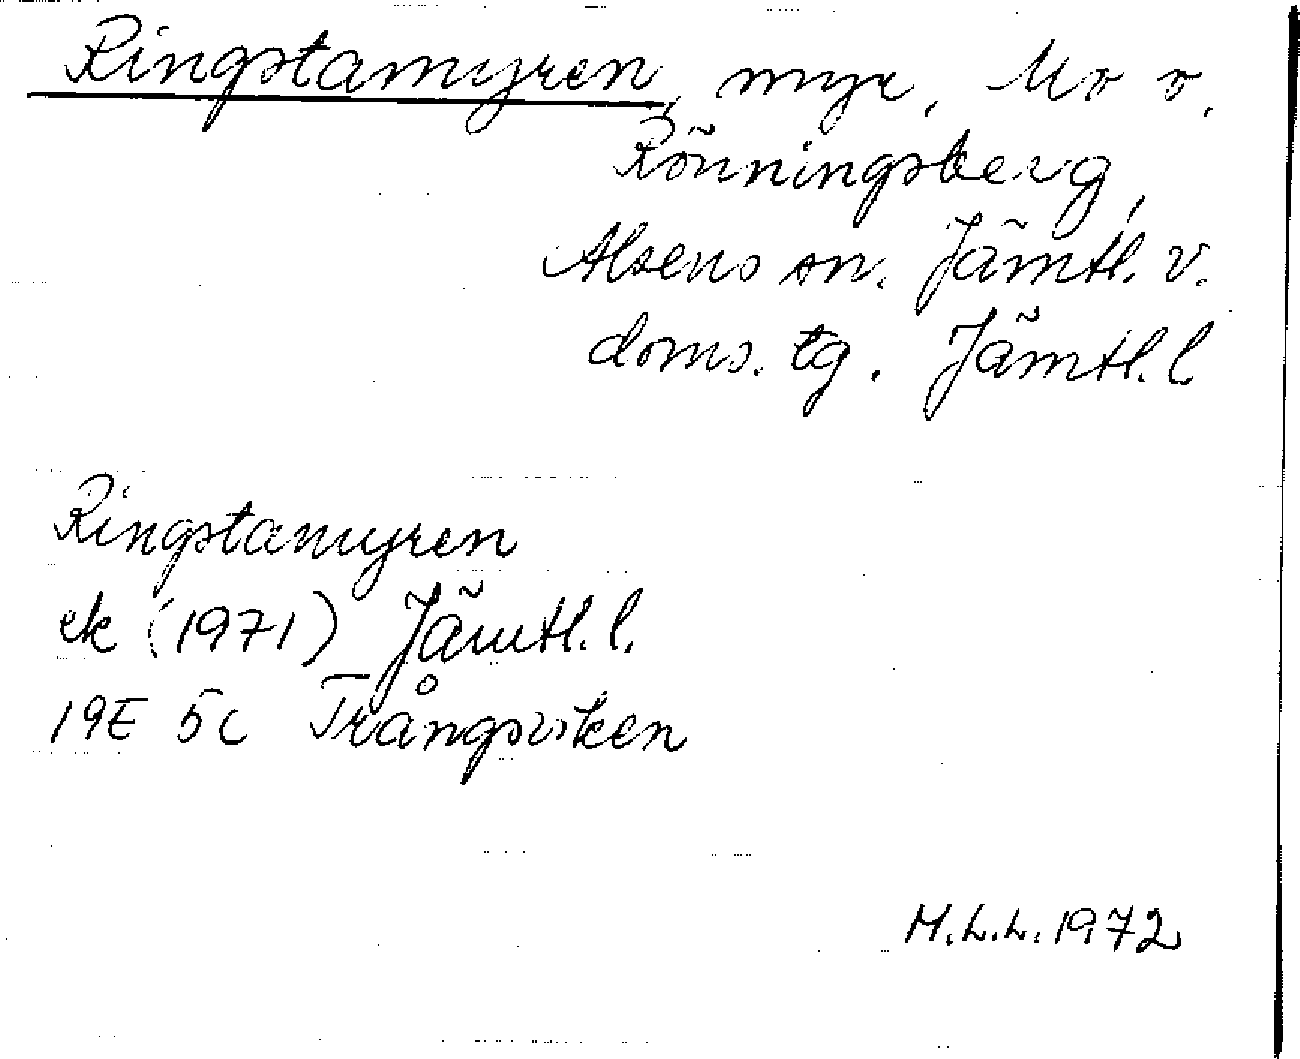 Ringstamyren, myr, NO o.
Rönningsberg,
Alsens sn. Jämtl. v.
doms. tg. Jämtl. l
Ringstamyren
ek (1971) Jämtl. l.
19E 5c Trångsviken
M.L.L. 1972